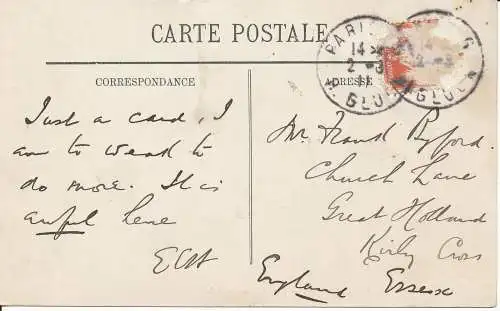 CARTE POSTALE
CORRESPONDANCE
ADRESSE
PARIS
14
2 -3
11
R. GLUCK
14
2 -3
GLUCK
Just a card, I
am to weak to
do more. It is
awful here
Mr. Frank Byford.
Church Lane
Great Holland
Kirby Cross
England Essex